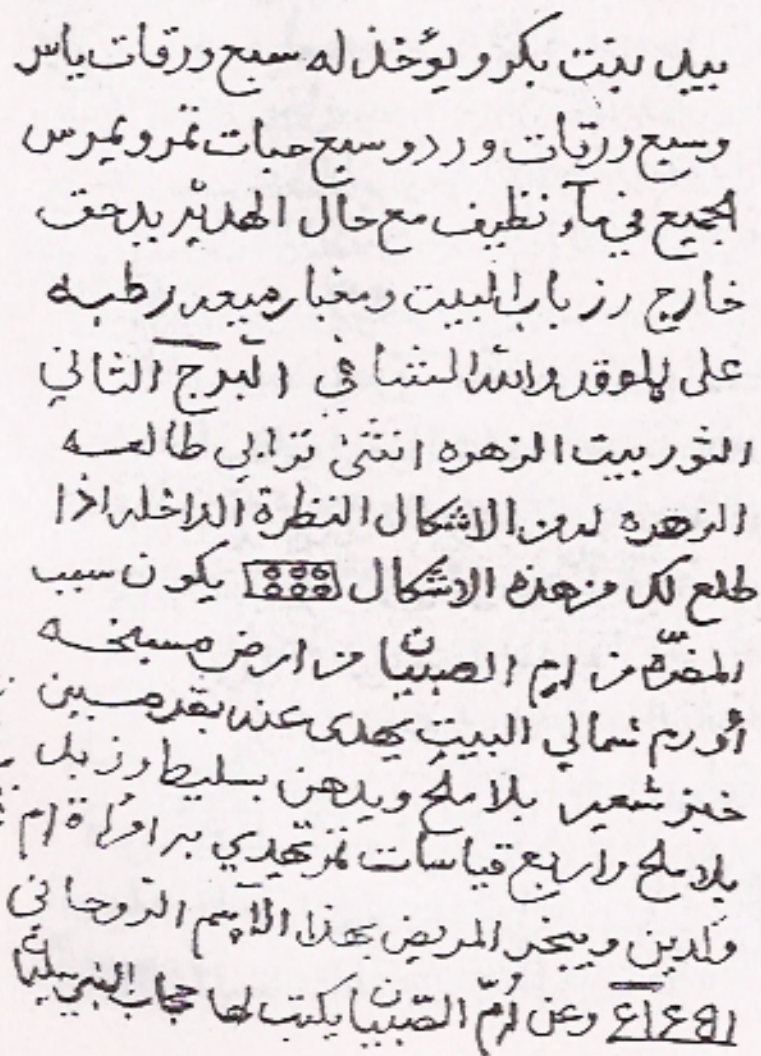 بيد بنت بكر ويؤخذ له سبع ورقات ياس
وسبع ورقات ورد وسبع حبات تمر ويمرس
الجميع في مآء نظيف مع حال الهدير يدحق
خارج رز باب البيت ومغبار رطبه
على الموقد والله في البرج الثاني
الثور بيت الزهره انثى ترابي طالعه
الزهره لدمن الاشكال النظرة الداخله اذا
طلع لك من هذه الاشكال يكون سبب
المضرّه من ام الصبيان من ارض مسبخه
أورم شمالي البيت يهدى عند
خبز شعير بلا ملح ويدهن بسليط وزبل
بلا ملح واربع قياسات تمر تهدي بر امرأة ام
والدين ويبخر المريض بهذا الآسم الروحاني
وعن أمّ الصّبيان يكتب لها حجاب النبي سليمان